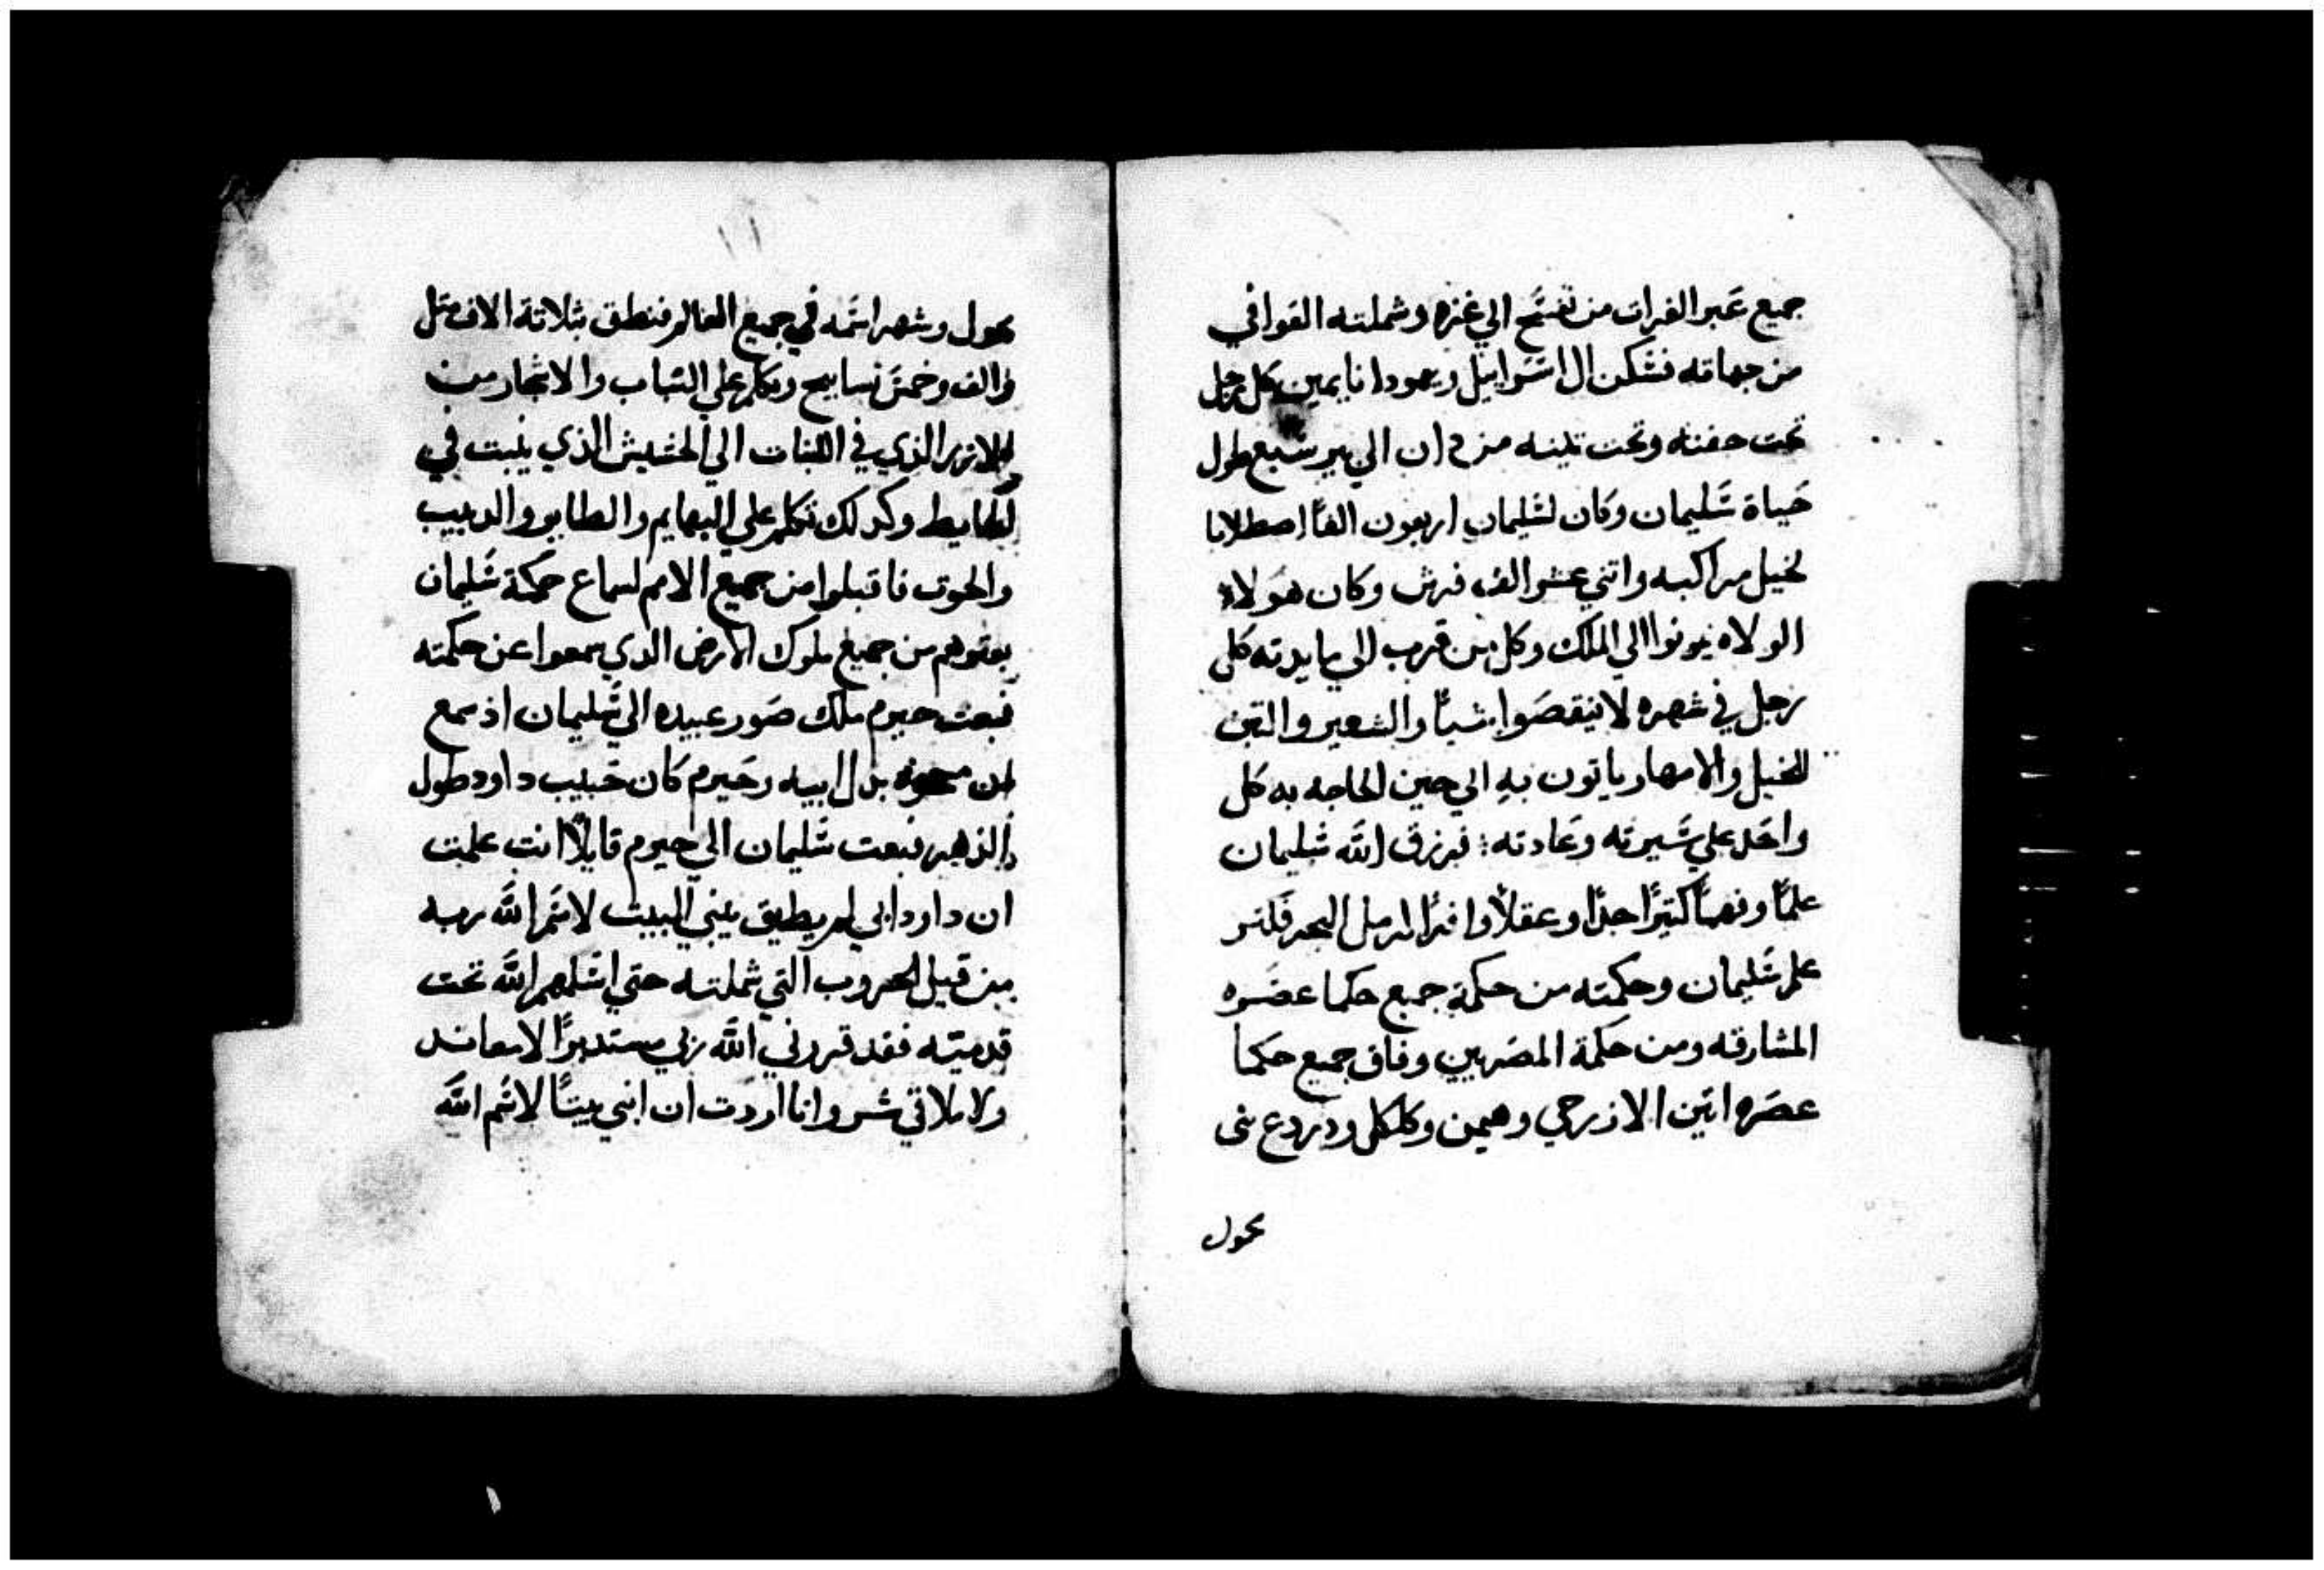 جميع عبر الفرات من تفسح الي غزه وشملته العوافي
من جهاته فسكن ال اسراييل ويهودا نايمين كل رجل
تحت جفنته وتحت تينه من دان الي بير سبع طول
حياة سليمان وكان لسليمان اربعون الفًا اصطلابا
لخيل مراكبه واثني عشر الف فرس وكان هولاء
الولاه يونوا الي الملك وكل من قرب الي مايدته كل
رجل في شهره لا ينقصوا شيًا والشعير والتبن
للخيل والامهار ياتون به الي حين الحاجه به كل
واحد علي سيرته وعادته : فرزق الله سليمان
علمًا وفهمًا كثيرًا جدًا وعقلًا وافرًا كرمل البحر فكثر
علم سليمان وحكمته من حكمة جميع حكما عصره
المشارقه ومن حكمة المصريين وفاق جميع حكما
عصره اتين الازرحي وهيمن وكلكل ودردع بني
محول
١١
محول وشهر اسمه في جميع العالم فنطق بثلاثة الاف مثل
والف وخمس تسابيح وتكلم علي الشاب والاشجار من
الارز الذي في اللبنان الي الحشيش الذي ينبت في
الحايط وكدلك تكلم علي البهايم والطاير والدبيب
والحوت فاقبلوا من جميع الامم لسماع حكمة سليمان
بعتوهم من جميع ملوك الارض الدي سمعوا عن حكمته
فبعت حيرم ملك صور عبيده الي سليمان اذ سمع
ان مسحوه بدل ابيه وحيرم كان حبيب داود طول
الدهر فبعت سليمان الي حيرم قايلًا انت علمت
ان داود ابي لم يطيق يبني البيت لاسم الله ربه
من قبل الحروب التي شملته حتي اسلمهم الله تحت
قدميه فقد قررني الله ربي مستديرًا لا معاند
ولا ملاقي شر وانا اردت ان ابني بيتًا لاسم الله